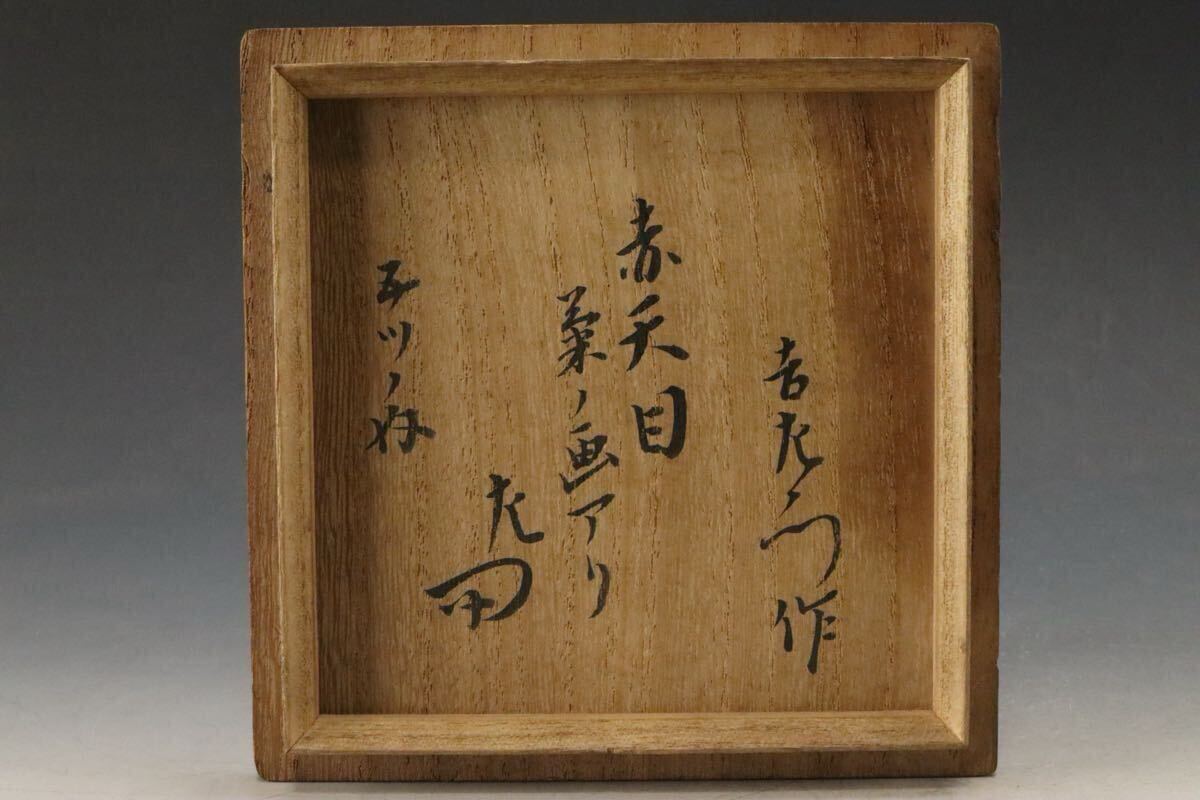 吉左衛門作
赤天目
菊ノ画アリ
左
五ツノ内